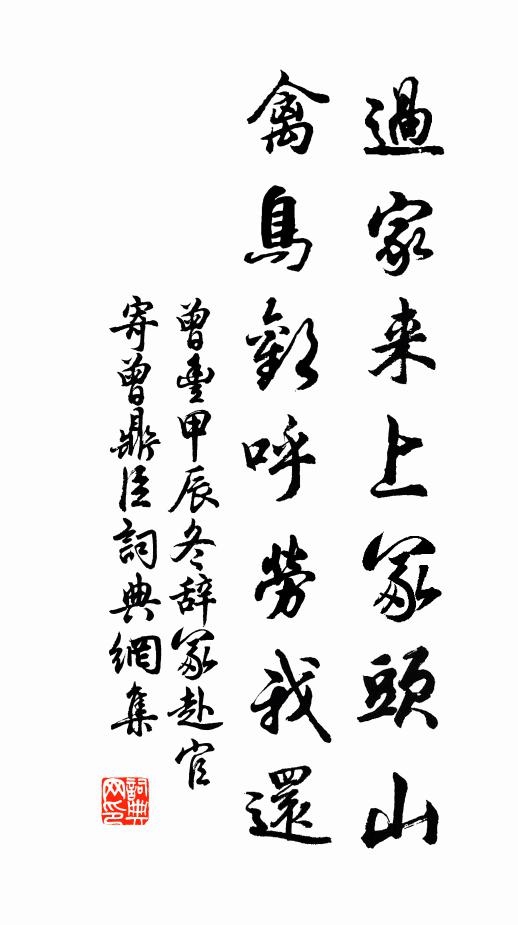 過家来上冢頭山
禽鳥歡呼勞我還
曾豊甲辰冬辞冢赴官
寄曾鼎臣詞典網集
詞典網印